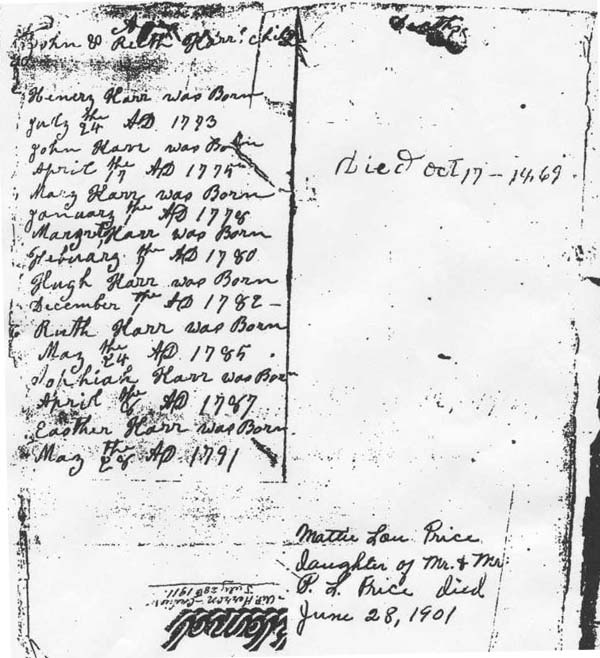 John & Ruth Harr Chil
Henery Harr was Born
July the 24 AD. 1773
John Harr was Born
April the 17 AD 1775
Mary Harr was Born
January the AD 1778
Margret Harr was Born
Februarg the AD 1780
Hugh Harr was Born
December the 1 AD 1782 –
Ruth Harr was Born
May the 24 AD. 1785.
Sophiah Harr was Born
April the 6 AD 1787
Easther Harr was Born
May the 28 AD. 1791
Deaths
Died Oct 17 – 1469
Mattie Lou Price
daughter of Mr. & Mr
P. L. Price died
June 28, 1901
July 28th 1911.